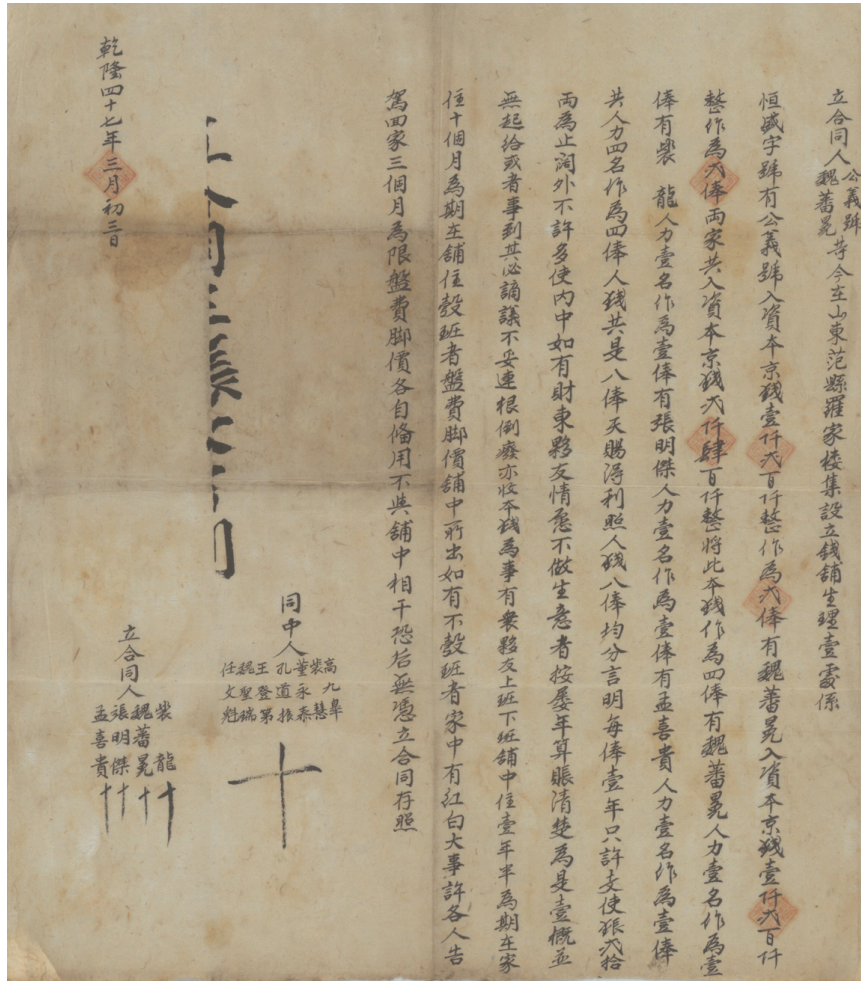 立合同人公義號魏蕃冕等今在山東范縣羅家楼集設立錢舖生理壹處係
恒盛字號有公義號入資本京錢壹仟弍百仟整作為弍俸有魏蕃冕入資本京錢壹仟弍百仟
整作為弍俸両家共入資本京錢弍仟肆百仟整將此本錢作為四俸有魏蕃冕人力壹名作為壹
俸有裴龍人力壹名作為壹俸有張明傑人力壹名作為壹俸有孟喜貴人力壹名作為壹俸
共人力四名作為四俸人錢共是八俸天賜得利照人錢八俸均分言明每俸壹年只許支使銀弍拾
両為止詞外不許多使內中如有財東夥友情愿不做生意者按屡年算賬清楚為是壹概並
無起給或者事到其必謫議不妥連根倒廢亦收本錢為事有衆夥友上班下班舖中住壹年半為期在家
住十個月為期在舖住彀班者盤費脚價舖中所出如有不彀班者家中有紅白大事許各人告
駕回家三個月為限盤費脚價各自俻用不與舖中相干恐后無憑立合同存照
同中人
高九皋
裴慧
董永泰
孔道振
王登第
魏聖瑞
任文魁
十
立合同人
裴龍十
魏蕃冕十
張明傑十
孟喜貴十
乾隆四十七年三月初三日